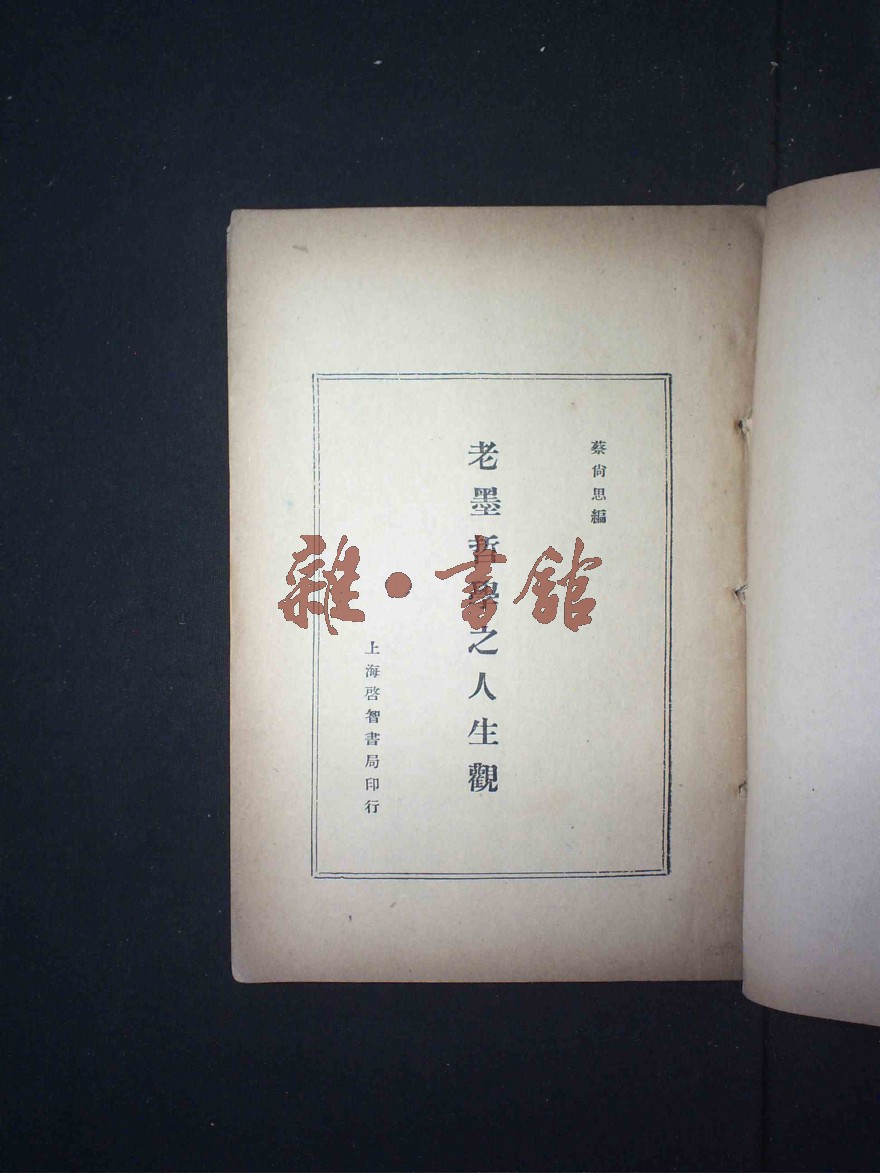 蔡尙思編
老墨哲學之人生觀
上海啓智書局印行
雜·書館